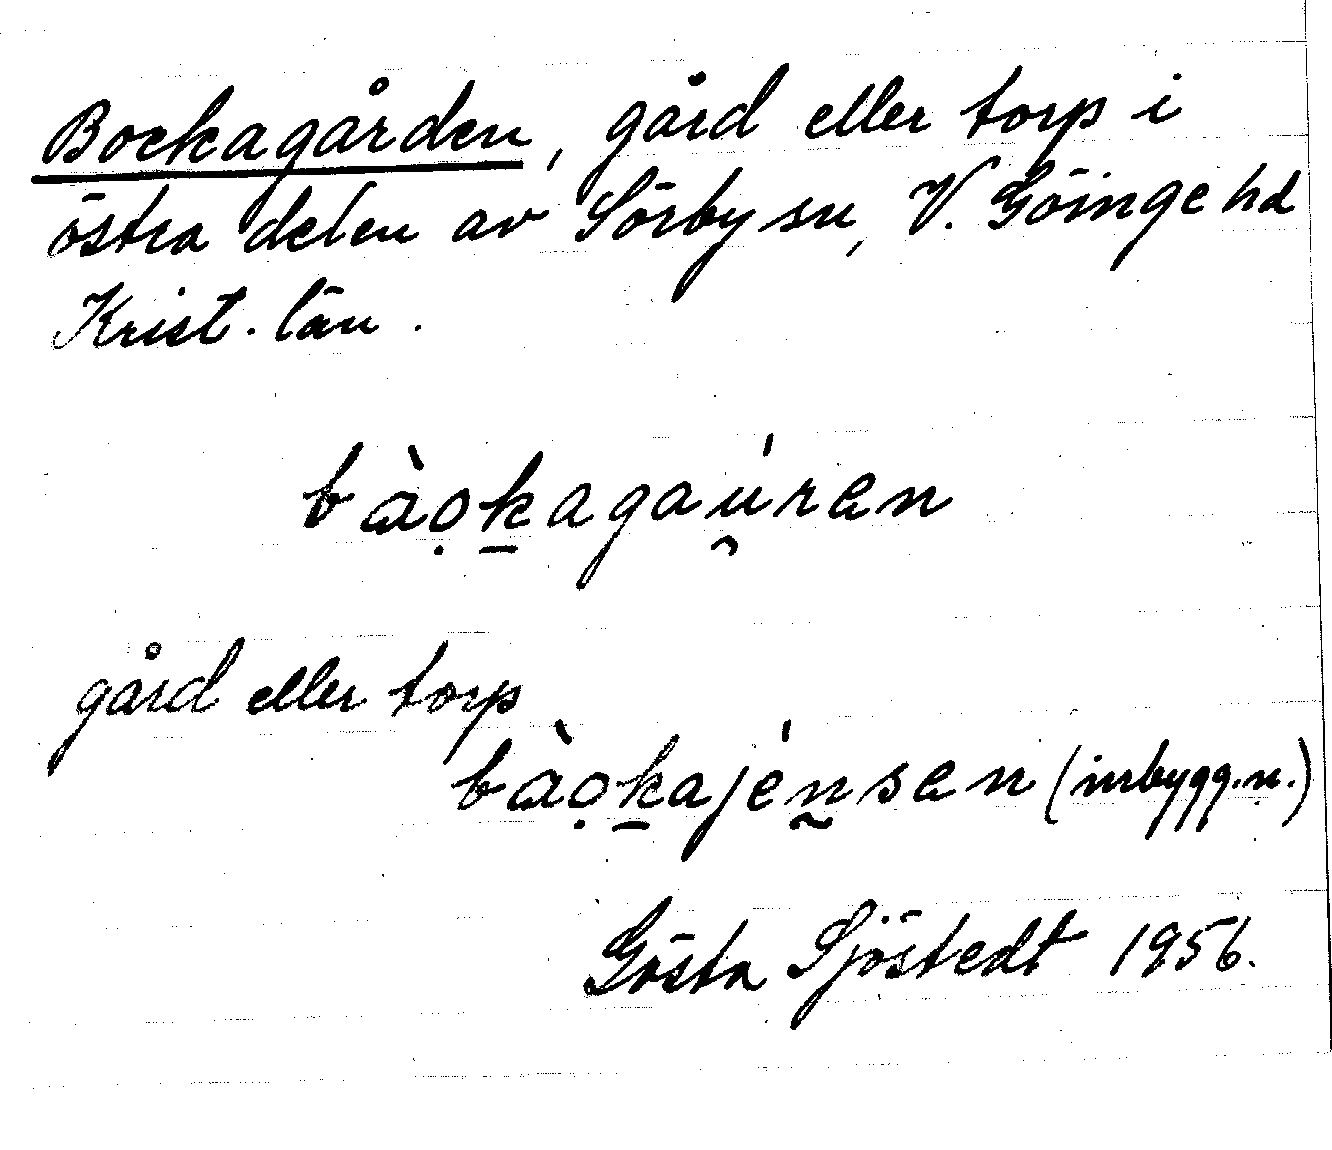 Bockagården, gård eller torp i
östra delen av Sörby sn, V. Göinge hd
Krist. län.
bàọk̠agaú̯ren
gård eller torp
bàọk̠ajén̰sen (inbygg.n.)
Gösta Sjöstedt 1956.